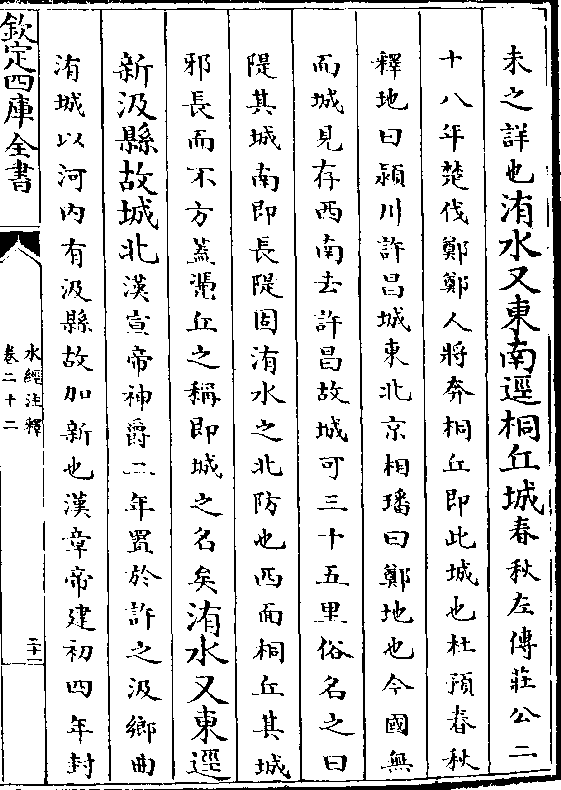 未之詳也洧水又東南逕桐丘城春秋左傳莊公二
十八年楚伐鄭鄭人將奔桐丘即此城也杜預春秋
釋地曰潁川許昌城東北京相璠曰鄭地也今國無
而城見存西南去許昌故城可三十五里俗名之曰
隄其城南即長隄固洧水之北防也西面桐丘其城
邪長而不方蓋憑丘之稱即城之名矣洧水又東逕
新汲縣故城北漢宣帝神爵二年置於許之汲鄉曲
洧城以河內有汲縣故加新也漢章帝建初四年封
欽定四庫全書
水經注釋
卷二十二
二十一